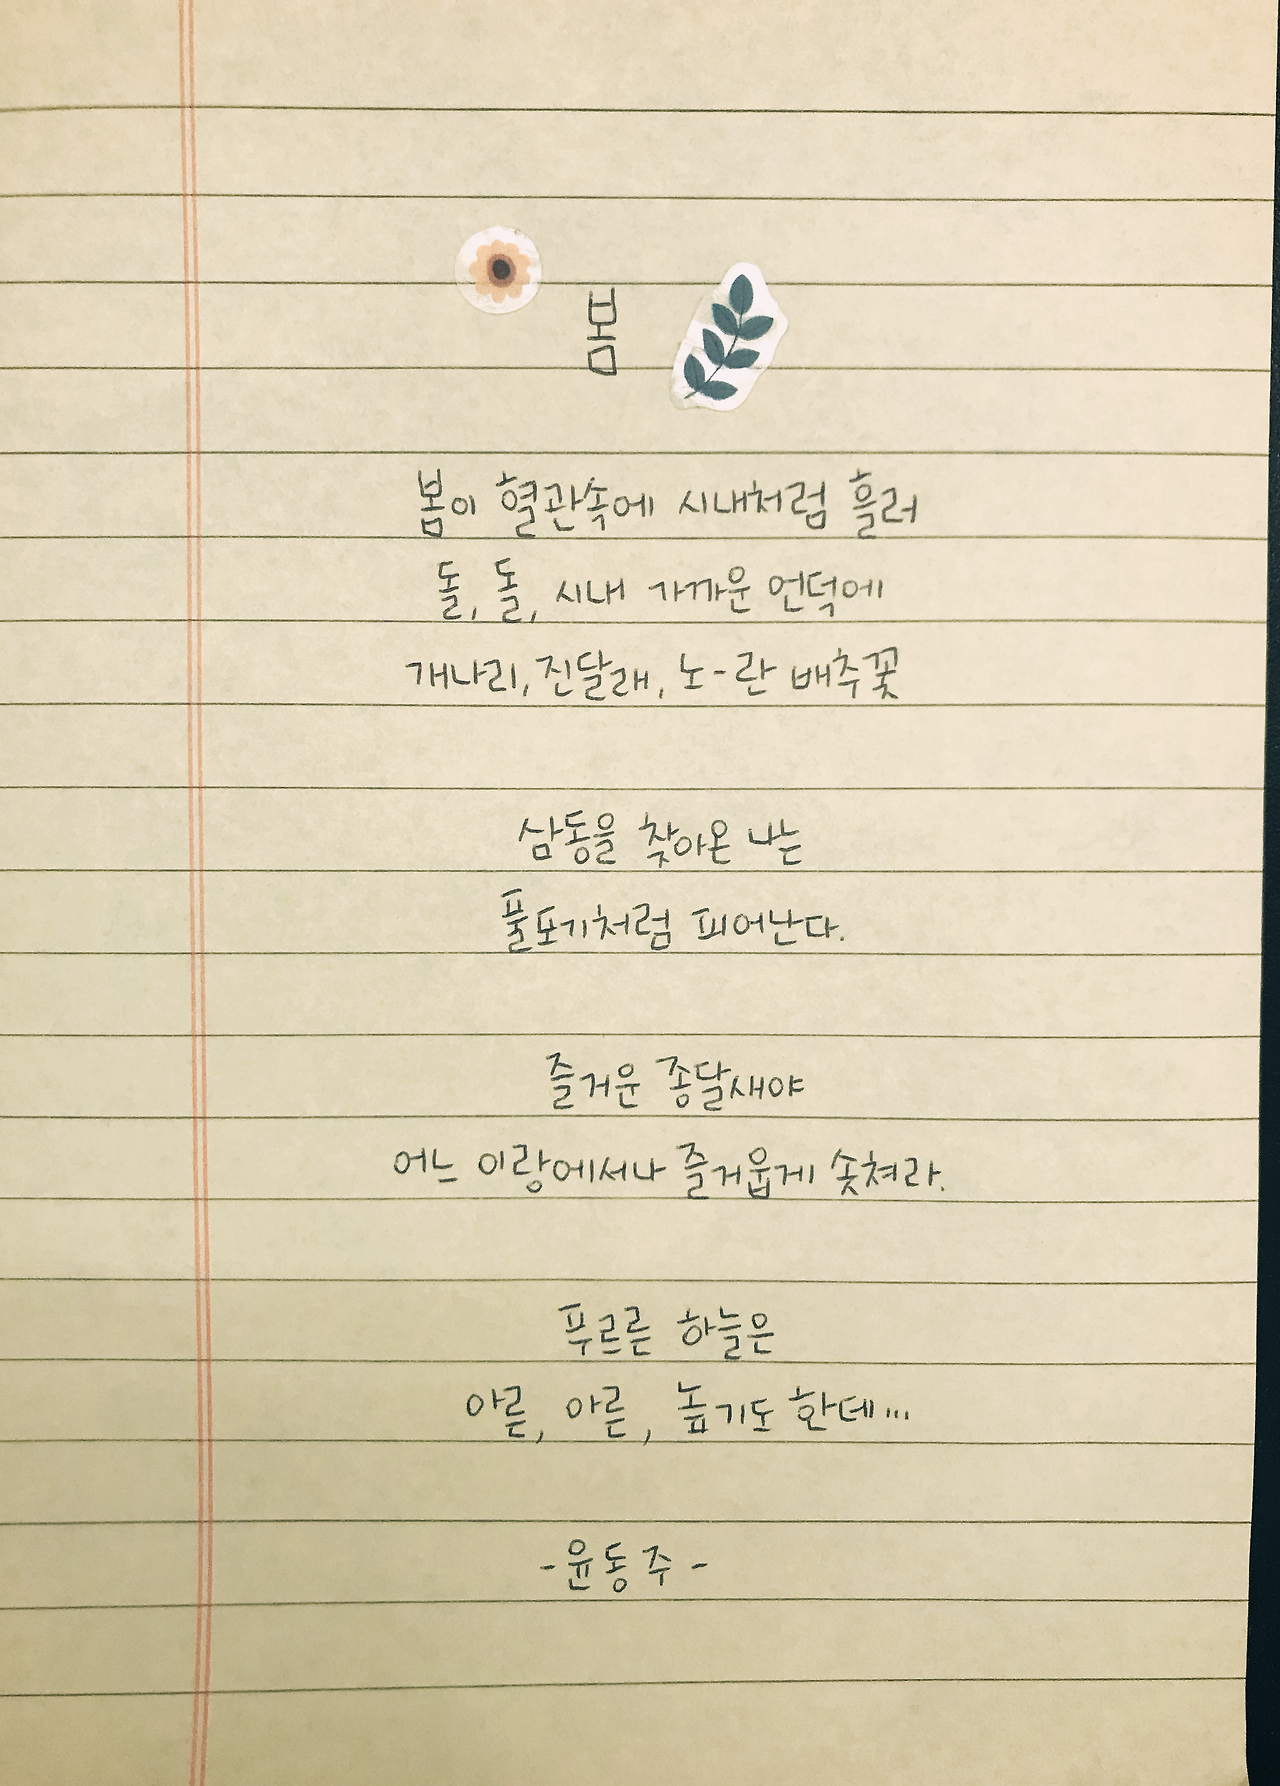 봄
봄이 혈관속에 시내처럼 흘러
돌, 돌, 시내 가까운 언덕에
개나리, 진달래, 노-란 배추꽃
삼동을 찾아온 나는
풀포기처럼 피어난다.
즐거운 종달새야
어느 이랑에서나 즐거웁게 솟쳐라.
푸르른 하늘은
아른, 아른, 높기도 한데...
-윤동주-